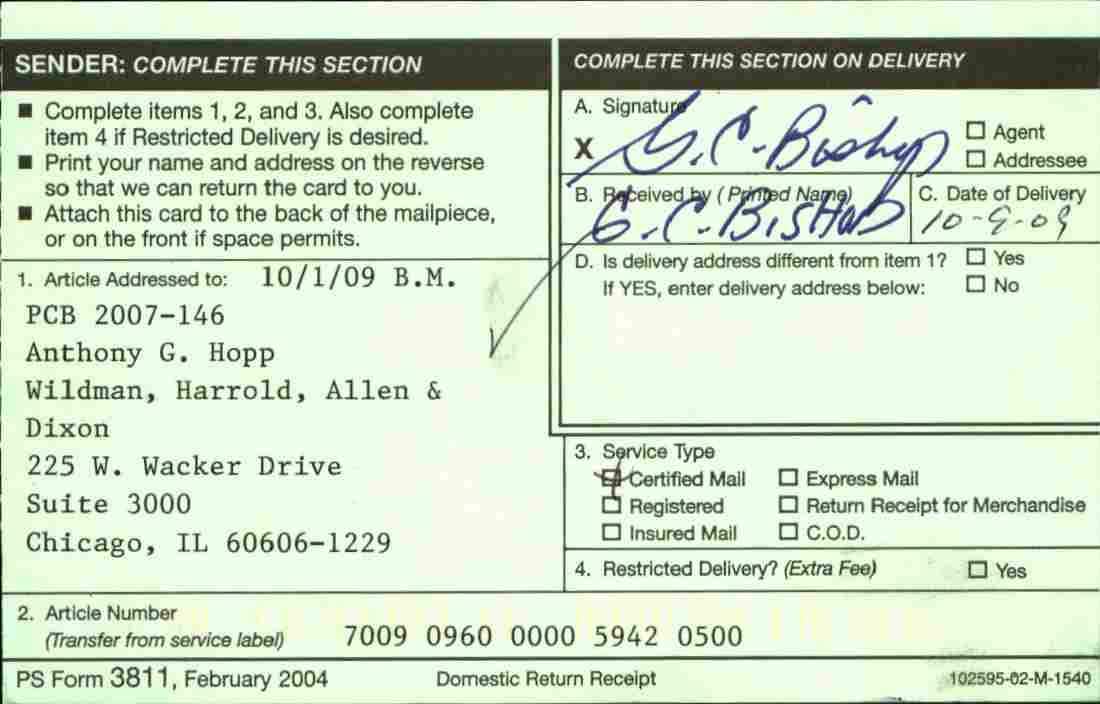 SENDER: COMPLETE THIS SECTION
■ Complete items 1, 2, and 3. Also complete
item 4 if Restricted Delivery is desired.
■ Print your name and address on the reverse
so that we can return the card to you.
■ Attach this card to the back of the mailpiece,
or on the front if space permits.
1. Article Addressed to: 10/1/09 B.M.
PCB 2007-146
Anthony G. Hopp
Wildman, Harrold, Allen &
Dixon
225 W. Wacker Drive
Suite 3000
Chicago, IL 60606-1229
COMPLETE THIS SECTION ON DELIVERY
A. Signature
X G.C. Bishop
☐ Agent
☐ Addressee
B. Received by (Printed Name)
G.C. BISHOP
C. Date of Delivery
10-9-09
D. Is delivery address different from item 1? ☐ Yes
If YES, enter delivery address below: ☐ No
3. Service Type
☒ Certified Mail ☐ Express Mail
☐ Registered ☐ Return Receipt for Merchandise
☐ Insured Mail ☐ C.O.D.
4. Restricted Delivery? (Extra Fee) ☐ Yes
2. Article Number
(Transfer from service label) 7009 0960 0000 5942 0500
PS Form 3811, February 2004 Domestic Return Receipt 102595-02-M-1540